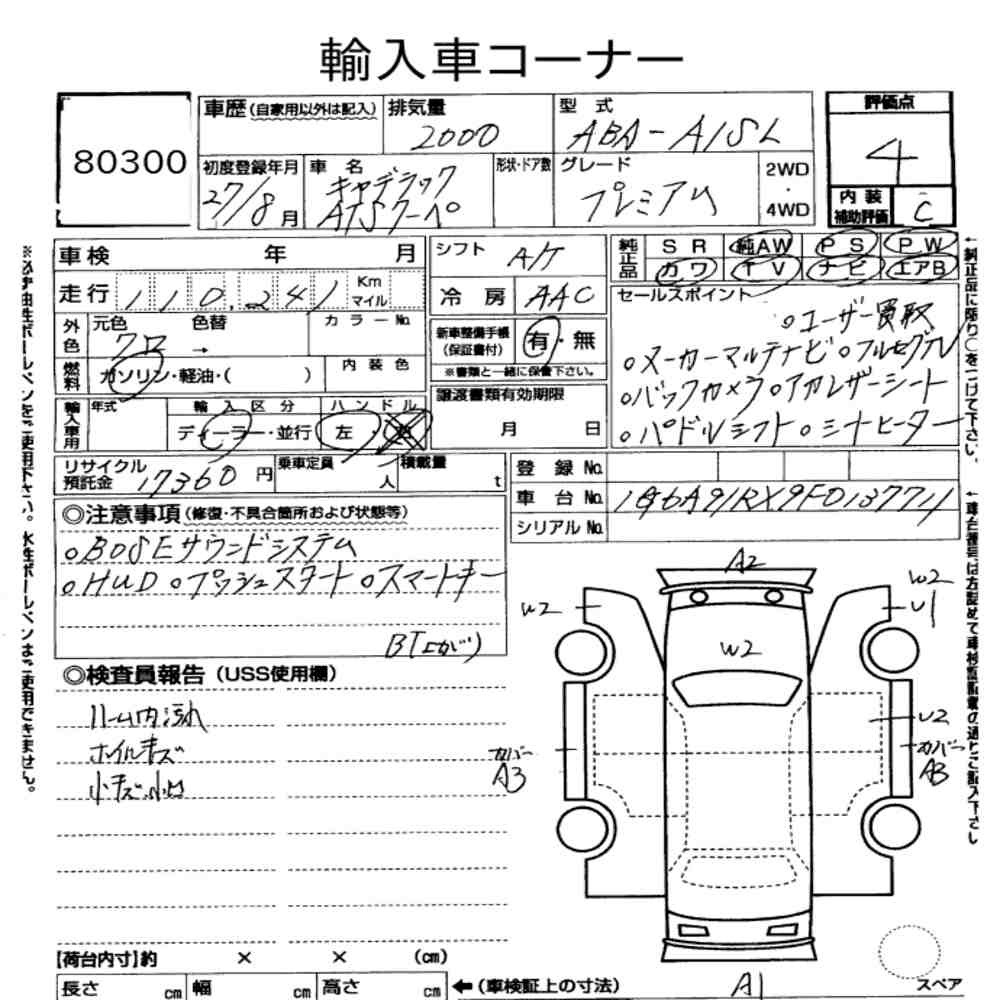 輸入車コーナー
80300
車歴(自家用以外は記入)
排気量
2000
型式
ABA-A1SL
評価点
4
初度登録年月
27/8月
車名
キャデラック
ATSクーペ
形状・ドア数
グレード
プレミアム
2WD
・
4WD
内装
補助評価
C
車検 年 月
走行 110,241 Km
マイル
外色
元色 色替
クロ →
カラーNo.
燃料
ガソリン・軽油・( )
内装色
輸入車用
年式
輸入区分
ディーラー・並行
ハンドル
左・右
リサイクル
預託金
17360円
乗車定員
人
積載量
t
シフト
A/T
冷房
AAC
新車整備手帳
(保証書付)
有・無
※書類と一緒に保管下さい。
譲渡書類有効期限
月 日
純正品
SR 純AW PS PW
カワ TV ナビ エアB
セールスポイント
○ユーザー買取
○メーカーマルチナビ○フルセグTV
○バックカメラ○アカレザーシート
○パドルシフト○シートヒーター
登録No.
車台No. 1G6A91RX9F0137711
シリアルNo.
◎注意事項(修復・不具合箇所および状態等)
○BOSEサウンドシステム
○HUD○プッシュスタート○スマートキー
BT上がり
◎検査員報告(USS使用欄)
ルーム内汚れ
ホイルキズ
小キズ小凹
A2
W2
W2
U1
W2
U2
カバー
A3
カバー
A3
A1
スペア
【荷台内寸】約 × × (cm)
長さ cm 幅 cm 高さ cm
←(車検証上の寸法)
※必ず油性ボールペンをご使用下さい。水性ボールペンはご使用できません。
←純正品に限り○をつけて下さい。
←車台番号は左詰めで車検証記載の通りご記入下さい